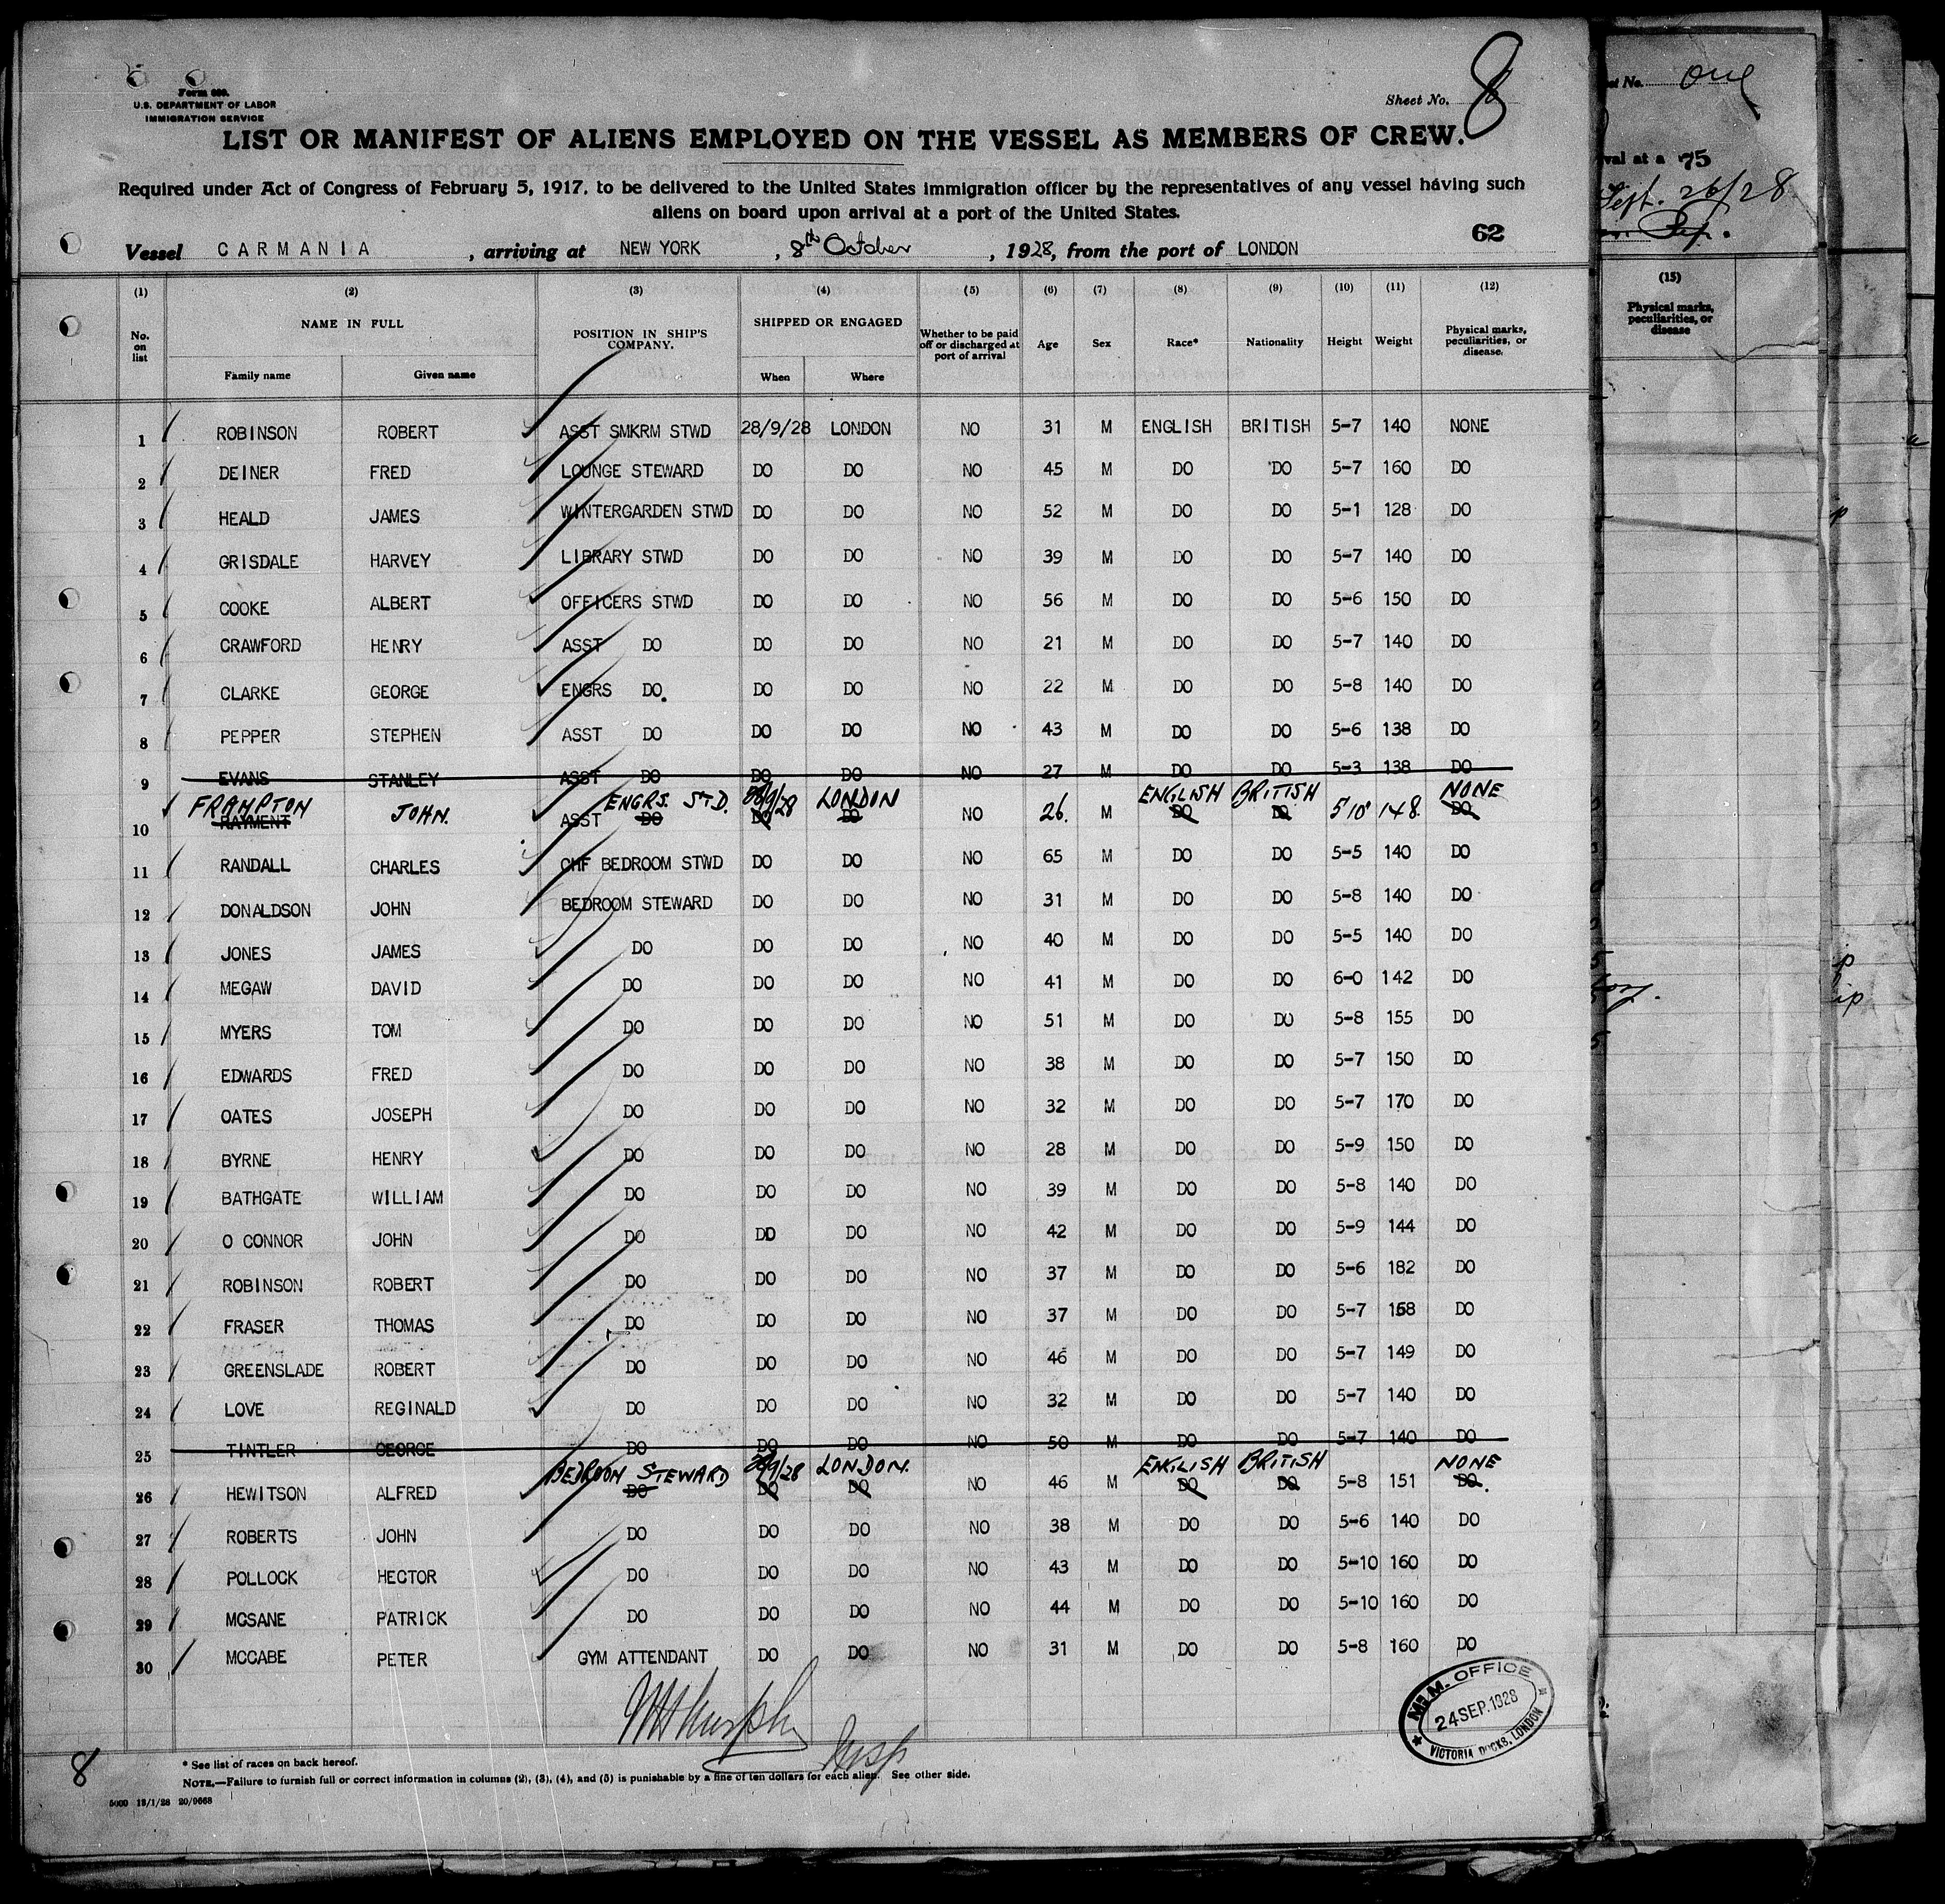 Form 689.
U.S. DEPARTMENT OF LABOR
IMMIGRATION SERVICE
Sheet No. 8
LIST OR MANIFEST OF ALIENS EMPLOYED ON THE VESSEL AS MEMBERS OF CREW.
Required under Act of Congress of February 5, 1917, to be delivered to the United States immigration officer by the representatives of any vessel having such
aliens on board upon arrival at a port of the United States.
62
Vessel CARMANIA, arriving at NEW YORK, 8th October, 1928, from the port of LONDON
(1) (2) (3) (4) (5) (6) (7) (8) (9) (10) (11) (12)
No. on list NAME IN FULL Family name Given name POSITION IN SHIP'S COMPANY. SHIPPED OR ENGAGED When Where Whether to be paid off or discharged at port of arrival Age Sex Race* Nationality Height Weight Physical marks, peculiarities, or disease.
1 ROBINSON ROBERT ASST SMKRM STWD 28/9/28 LONDON NO 31 M ENGLISH BRITISH 5-7 140 NONE
2 DEINER FRED LOUNGE STEWARD DO DO NO 45 M DO DO 5-7 160 DO
3 HEALD JAMES WINTERGARDEN STWD DO DO NO 52 M DO DO 5-1 128 DO
4 GRISDALE HARVEY LIBRARY STWD DO DO NO 39 M DO DO 5-7 140 DO
5 COOKE ALBERT OFFICERS STWD DO DO NO 56 M DO DO 5-6 150 DO
6 CRAWFORD HENRY ASST DO DO DO NO 21 M DO DO 5-7 140 DO
7 CLARKE GEORGE ENGRS DO. DO DO NO 22 M DO DO 5-8 140 DO
8 PEPPER STEPHEN ASST DO DO DO NO 43 M DO DO 5-6 138 DO
9 EVANS STANLEY ASST DO DO DO NO 27 M DO DO 5-3 138 DO
FRAMPTON ENGRS. STD. /9/28 LONDON ENGLISH BRITISH NONE
10 RAYMENT JOHN. ASST DO DO DO NO 26. M DO DO 5 10 148. DO
11 RANDALL CHARLES CHF BEDROOM STWD DO DO NO 65 M DO DO 5-5 140 DO
12 DONALDSON JOHN BEDROOM STEWARD DO DO NO 31 M DO DO 5-8 140 DO
13 JONES JAMES DO DO DO NO 40 M DO DO 5-5 140 DO
14 MEGAW DAVID DO DO DO NO 41 M DO DO 6-0 142 DO
15 MYERS TOM DO DO DO NO 51 M DO DO 5-8 155 DO
16 EDWARDS FRED DO DO DO NO 38 M DO DO 5-7 150 DO
17 OATES JOSEPH DO DO DO NO 32 M DO DO 5-7 170 DO
18 BYRNE HENRY DO DO DO NO 28 M DO DO 5-9 150 DO
19 BATHGATE WILLIAM DO DO DO NO 39 M DO DO 5-8 140 DO
20 O CONNOR JOHN DO DO DO NO 42 M DO DO 5-9 144 DO
21 ROBINSON ROBERT DO DO DO NO 37 M DO DO 5-6 182 DO
22 FRASER THOMAS DO DO DO NO 37 M DO DO 5-7 158 DO
23 GREENSLADE ROBERT DO DO DO NO 46 M DO DO 5-7 149 DO
24 LOVE REGINALD DO DO DO NO 32 M DO DO 5-7 140 DO
25 TINTLER GEORGE DO DO DO NO 50 M DO DO 5-7 140 DO
BEDROOM STEWARD /9/28 LONDON. ENGLISH BRITISH NONE
26 HEWITSON ALFRED DO DO DO NO 46 M DO DO 5-8 151 DO.
27 ROBERTS JOHN DO DO DO NO 38 M DO DO 5-6 140 DO
28 POLLOCK HECTOR DO DO DO NO 43 M DO DO 5-10 160 DO
29 MCSANE PATRICK DO DO DO NO 44 M DO DO 5-10 160 DO
30 MCCABE PETER GYM ATTENDANT DO DO NO 31 M DO DO 5-8 160 DO
M.M. OFFICE
24 SEP. 1928
VICTORIA DOCKS, LONDON
Insp
8
* See list of races on back hereof.
NOTE.—Failure to furnish full or correct information in columns (2), (3), (4), and (5) is punishable by a fine of ten dollars for each alien. See other side.
5000 13/1/28 20/9668
No. one
val at a 75
Sept. 26/28
(15)
Physical marks, peculiarities, or disease